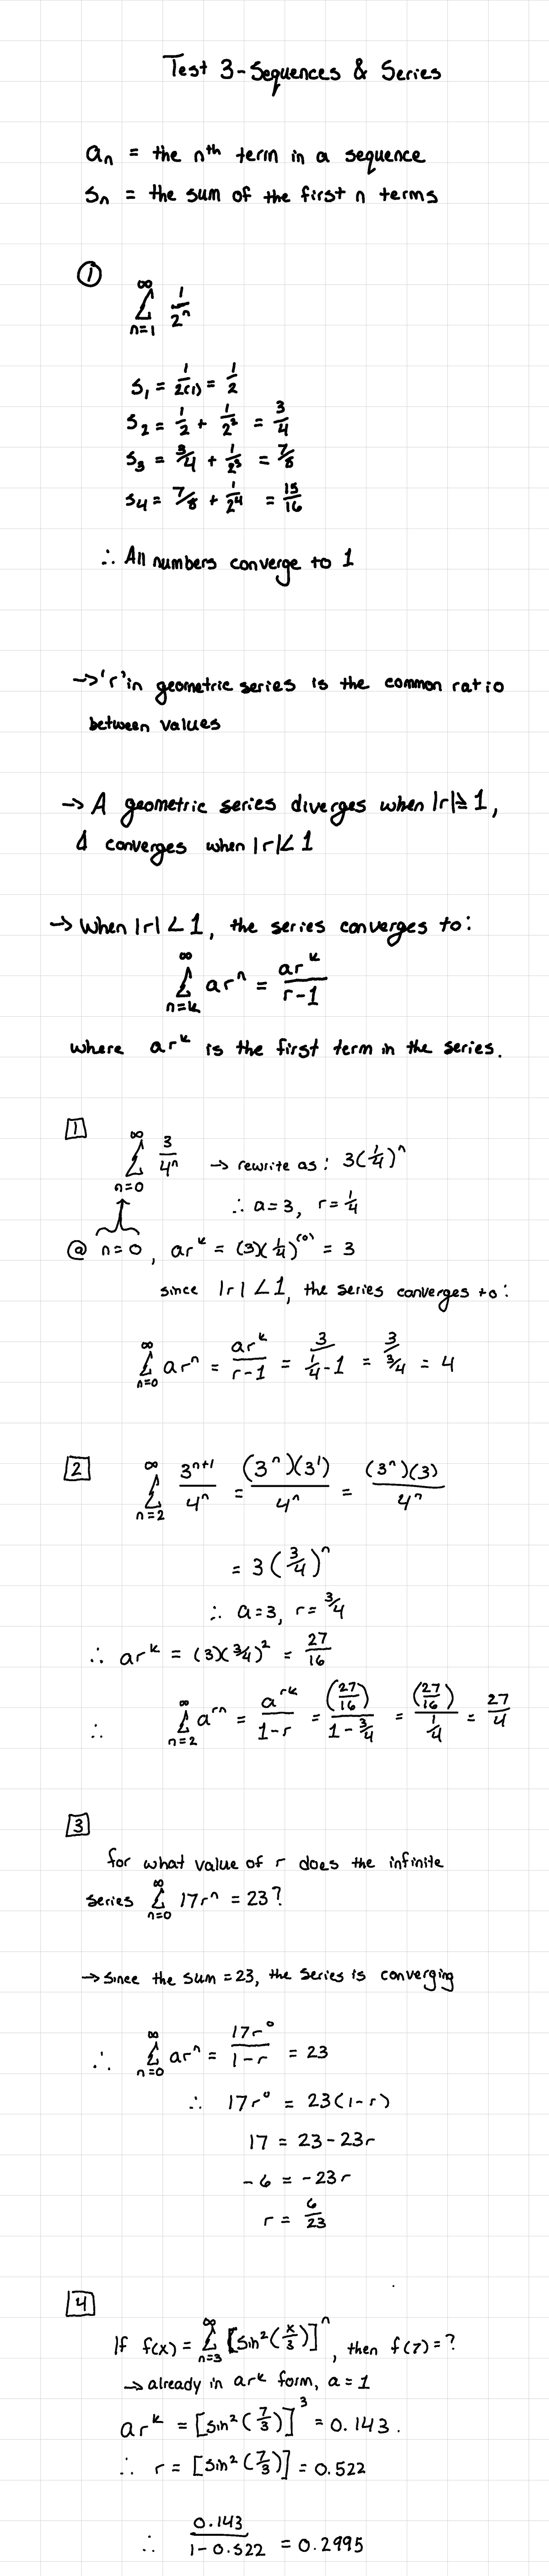 Test 3 - Sequences & Series
aₙ = the nᵗʰ term in a sequence
sₙ = the sum of the first n terms
① ∑_{n=1}^{∞} 1/2ⁿ
S₁ = 1/2(1) = 1/2
S₂ = 1/2 + 1/2² = 3/4
S₃ = 3/4 + 1/2³ = 7/8
S₄ = 7/8 + 1/2⁴ = 15/16
∴ All numbers converge to 1
→ 'r' in geometric series is the common ratio
between values
→ A geometric series diverges when |r| ≥ 1,
& converges when |r| < 1
→ When |r| < 1, the series converges to:
∑_{n=k}^{∞} arⁿ = arᵏ/(r-1)
where arᵏ is the first term in the series.
1 ∑_{n=0}^{∞} 3/4ⁿ → rewrite as: 3(1/4)ⁿ
∴ a = 3, r = 1/4
@ n = 0, arᵏ = (3)(1/4)⁽⁰⁾ = 3
since |r| < 1, the series converges to:
∑_{n=0}^{∞} arⁿ = arᵏ/(r-1) = 3/(1/4 - 1) = 3/(3/4) = 4
2 ∑_{n=2}^{∞} 3ⁿ⁺¹/4ⁿ = (3ⁿ)(3¹)/4ⁿ = (3ⁿ)(3)/4ⁿ
= 3(3/4)ⁿ
∴ a = 3, r = 3/4
∴ arᵏ = (3)(3/4)² = 27/16
∴ ∑_{n=2}^{∞} aʳⁿ = aʳᵏ/(1-r) = (27/16)/(1 - 3/4) = (27/16)/(1/4) = 27/4
3
for what value of r does the infinite
series ∑_{n=0}^{∞} 17rⁿ = 23?
→ Since the sum = 23, the series is converging
∴ ∑_{n=0}^{∞} arⁿ = 17r⁰/(1-r) = 23
∴ 17r⁰ = 23(1-r)
17 = 23 - 23r
-6 = -23r
r = 6/23
4
If f(x) = ∑_{n=3}^{∞} [sin²(x/3)]ⁿ, then f(7) = ?
→ already in arᵏ form, a = 1
arᵏ = [sin²(7/3)]³ = 0.143.
∴ r = [sin²(7/3)] = 0.522
∴ 0.143/(1 - 0.522) = 0.2995